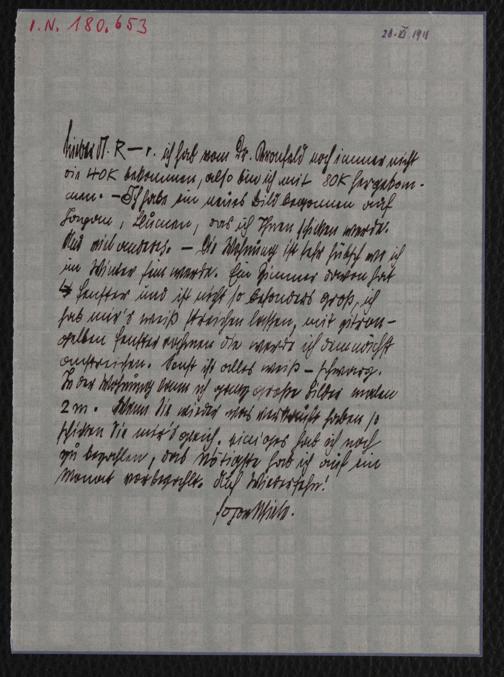 I.N. 180.653
28. XI. 1911
Lieber A. R–r. ich hab vom Dr. Kronfeld noch immer nicht
die 40K bekommen, also bin ich mit 80K hergekom-
men. – Ich habe ein neues Bild begonnen auf
Blumen, das ich Ihnen schicken werde.
Und ein anderes. – Die Wohnung ist sehr hübsch wo ich
im Winter sein werde. Ein Zimmer davon hat
4 Fenster und ist nicht so besonders groß, ich
hab mir's weiß streichen lassen, mit zitron-
gelben Fensterrahmen die werde ich demnächst
anstreichen. Sonst ist alles weiß – schwarz.
In der Wohnung kann ich ganz große Bilder malen
2 m. Wenn Sie wieder was verkauft haben so
schicken Sie mir's gleich. einiges hab ich noch
zu bezahlen, das Nötigste hab ich auf ein
Monat vorbezahlt. Auf Wiedersehn!